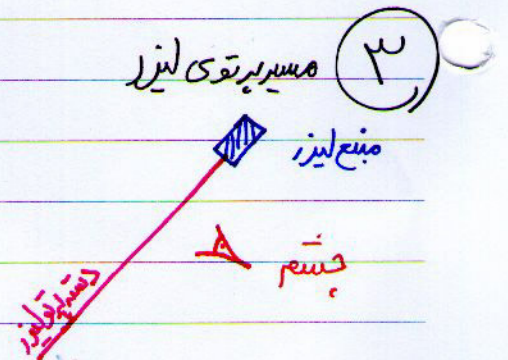 ۳
مسیر پرتوی لیزر
منبع لیزر
چشم
دسته پرتو لیزر